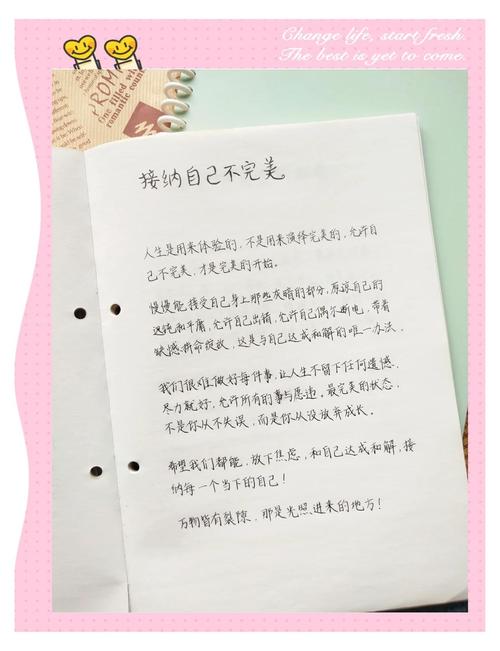 Change life, start fresh.
The best is yet to come.
ROM
one filled wi
romantic count
接纳自己不完美
人生是用来体验的，不是用来演绎完美的，允许自
己不完美，才是完美的开始。
慢慢能接受自己身上那些灰暗的部分，原谅自己的
迟钝和平庸，允许自己出错，允许自己偶尔断电，带着
缺憾拼命绽放，这是与自己达成和解的唯一办法。
我们很难做好每件事，让人生不留下任何遗憾，
尽力就好，允许所有的事与愿违。最完美的状态，
不是你从不失误，而是你从没放弃成长。
希望我们都能，放下焦虑，和自己达成和解，接
纳每一个当下的自己！
万物皆有裂隙，那是光照进来的地方！